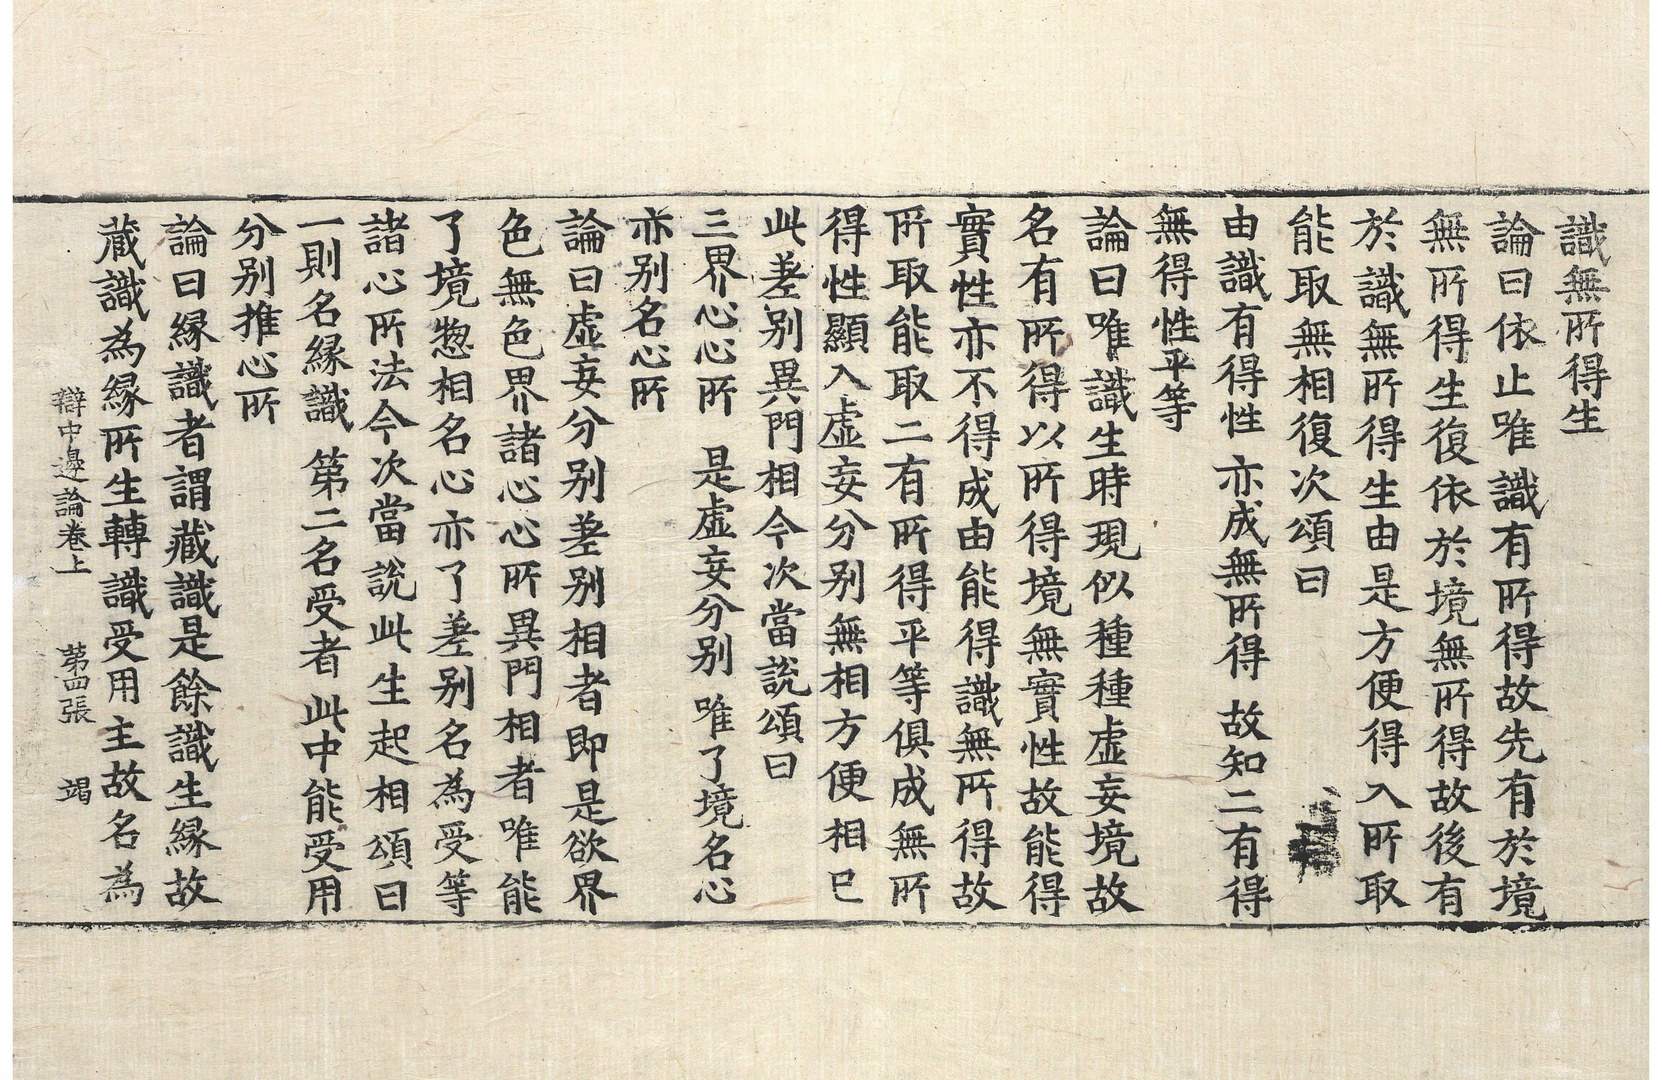 識無所得生
論曰依止唯識有所得故先有於境
無所得生復依於境無所得故後有
於識無所得生由是方便得入所取
能取無相復次頌曰
由識有得性　亦成無所得　故知二有得
無得性平等
論曰唯識生時現似種種虛妄境故
名有所得以所得境無實性故能得
實性亦不得成由能得識無所得故
所取能取二有所得平等俱成無所
得性顯入虛妄分別無相方便相已
此差別異門相今次當說頌曰
三界心心所　是虛妄分別　唯了境名心
亦別名心所
論曰虛妄分別差別相者即是欲界
色無色界諸心心所異門相者唯能
了境惣相名心亦了差別名為受等
諸心所法今次當說此生起相頌曰
一則名緣識　第二名受者　此中能受用
分別推心所
論曰緣識者謂藏識是餘識生緣故
藏識為緣所生轉識受用主故名為
辯中邊論卷上　第四張　竭